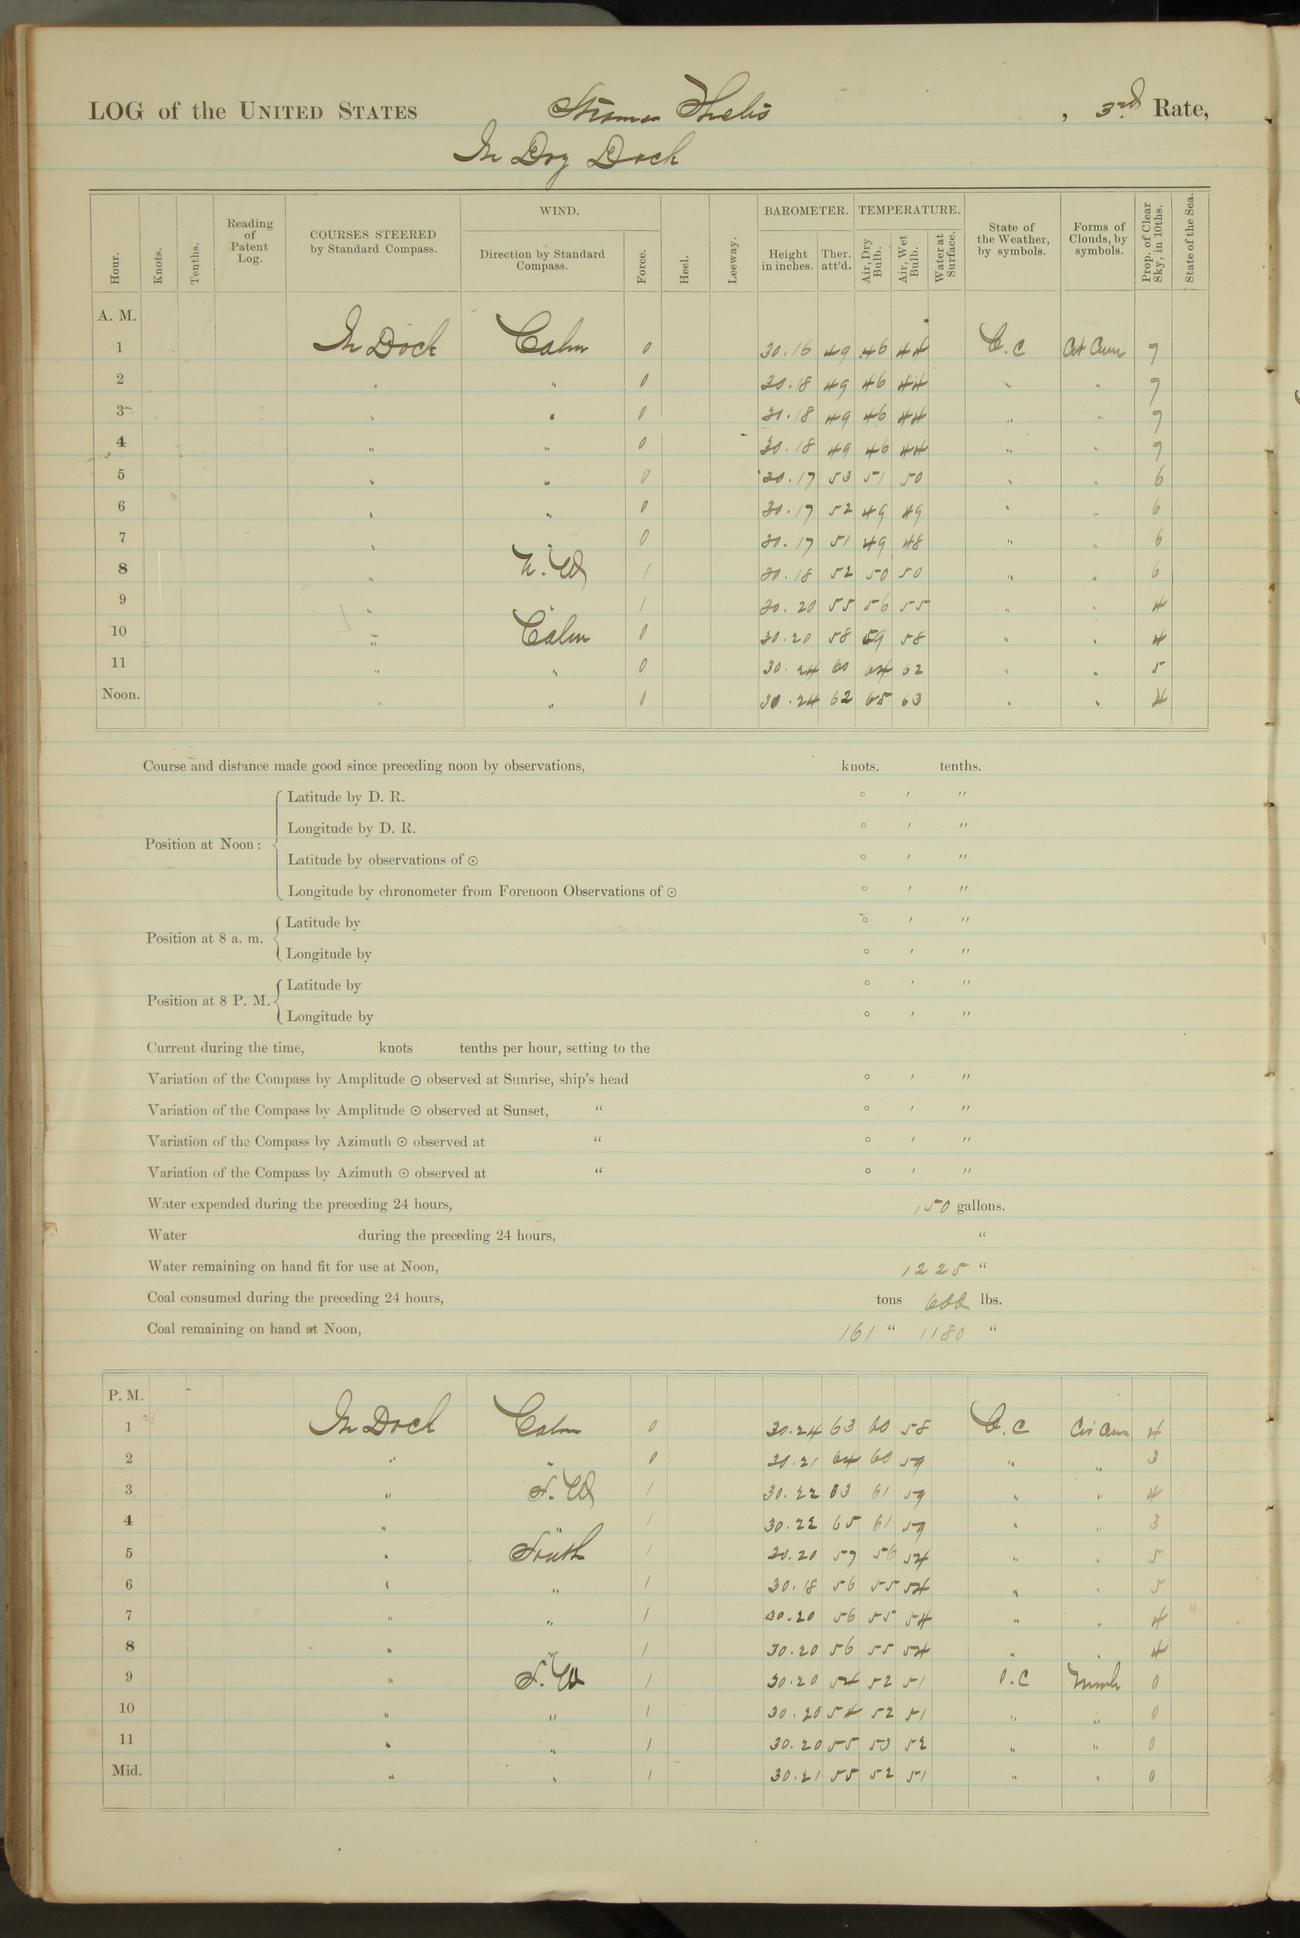 LOG of the UNITED STATES Steamer Thetis, 3rd Rate,
In Dry Dock
Hour. Knots. Tenths. Reading of Patent Log. COURSES STEERED by Standard Compass. WIND. Direction by Standard Compass. Force. Heel. Leeway. BAROMETER. Height in inches. Ther. att'd. TEMPERATURE. Air, Dry Bulb. Air, Wet Bulb. Water at Surface. State of the Weather, by symbols. Forms of Clouds, by symbols. Prop. of Clear Sky, in 10ths. State of the Sea.
A. M.
1 In Dock Calm 0 30.16 49 46 44 b.c Cum 7
2 " " 0 30.18 49 46 44 " " 7
3 " " 0 30.18 49 46 44 " " 7
4 " " 0 30.18 49 46 44 " " 7
5 " " 0 30.17 53 51 50 " " 6
6 " " 0 30.17 52 49 49 " " 6
7 " " 0 30.17 51 49 48 " " 6
8 " N.W 1 30.18 52 50 50 " " 6
9 " " 1 30.20 55 56 55 " " 4
10 " Calm 0 30.20 58 59 58 " " 4
11 " " 0 30.24 60 64 62 " " 5
Noon. " " 0 30.24 62 65 63 " " 4
Course and distance made good since preceding noon by observations, knots. tenths.
Position at Noon:
Latitude by D. R. ° ′ ″
Longitude by D. R. ° ′ ″
Latitude by observations of ☉ ° ′ ″
Longitude by chronometer from Forenoon Observations of ☉ ° ′ ″
Position at 8 a. m.
Latitude by ° ′ ″
Longitude by ° ′ ″
Position at 8 P. M.
Latitude by ° ′ ″
Longitude by ° ′ ″
Current during the time, knots tenths per hour, setting to the
Variation of the Compass by Amplitude ☉ observed at Sunrise, ship's head ° ′ ″
Variation of the Compass by Amplitude ☉ observed at Sunset, " ° ′ ″
Variation of the Compass by Azimuth ☉ observed at " ° ′ ″
Variation of the Compass by Azimuth ☉ observed at " ° ′ ″
Water expended during the preceding 24 hours, 150 gallons.
Water during the preceding 24 hours, "
Water remaining on hand fit for use at Noon, 1225 "
Coal consumed during the preceding 24 hours, tons 600 lbs.
Coal remaining on hand at Noon, 161 " 1180 "
P. M.
1 In Dock Calm 0 30.24 63 60 58 b.c Cir Cum 4
2 " " 0 30.21 64 60 59 " " 3
3 " S.W 1 30.22 63 61 59 " " 4
4 " " 1 30.22 65 61 59 " " 3
5 " South 1 30.20 57 56 54 " " 5
6 " " 1 30.18 56 55 54 " " 5
7 " " 1 30.20 56 55 54 " " 4
8 " " 1 30.20 56 55 54 " " 4
9 " S.W 1 30.20 54 52 51 o.c Nimb 0
10 " " 1 30.20 54 52 51 " " 0
11 " " 1 30.20 55 53 52 " " 0
Mid. " " 1 30.21 55 52 51 " " 0